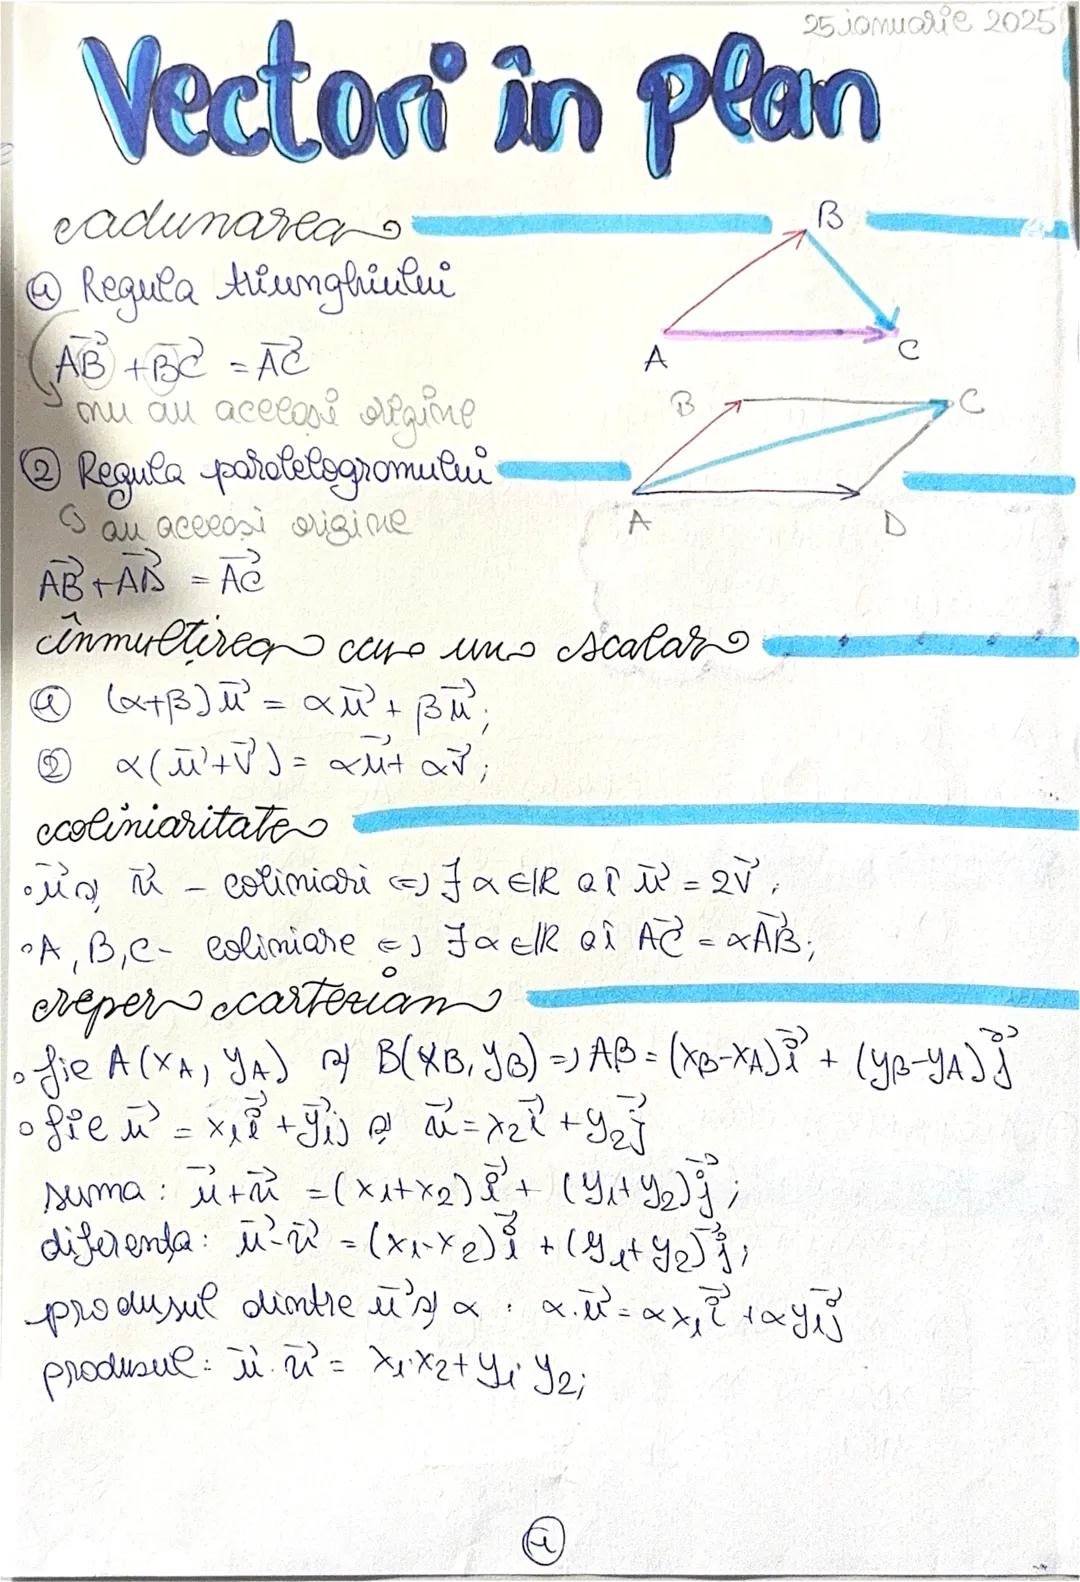 25 ianuarie 2025
Vectori în plan
adunarea
B
① Regula triunghiului
A
C
AB⃗ + BC⃗ = AC⃗
nu au aceeași origine
B
C
② Regula paralelogramului
A
D
au aceeași origine
AB⃗ + AD⃗ = AC⃗
înmulțirea cu un scalar
① (α+β)u⃗ = αu⃗ + βu⃗;
② α(u⃗+v⃗) = αu⃗ + αv⃗;
coliniaritate
• u⃗ și u⃗ – coliniari ⇔ ∃ α ∈ ℝ aî u⃗ = 2v⃗;
• A, B, C – coliniare ⇔ ∃ α ∈ ℝ aî AC⃗ = αAB⃗;
reper cartezian
• fie A(xA, yA) și B(xB, yB) ⇒ AB = (xB-xA)i⃗ + (yB-yA)j⃗
• fie u⃗ = x₁i⃗ + y₁j⃗ și u⃗ = x₂i⃗ + y₂j⃗
suma: u⃗+u⃗ = (x₁+x₂)i⃗ + (y₁+y₂)j⃗;
diferența: u⃗-u⃗ = (x₁-x₂)i⃗ + (y₁+y₂)j⃗;
produsul dintre u⃗ și α : α·u⃗ = αx₁i⃗ + αy₁j⃗
produsul: u⃗·u⃗ = x₁·x₂ + y₁·y₂;
①